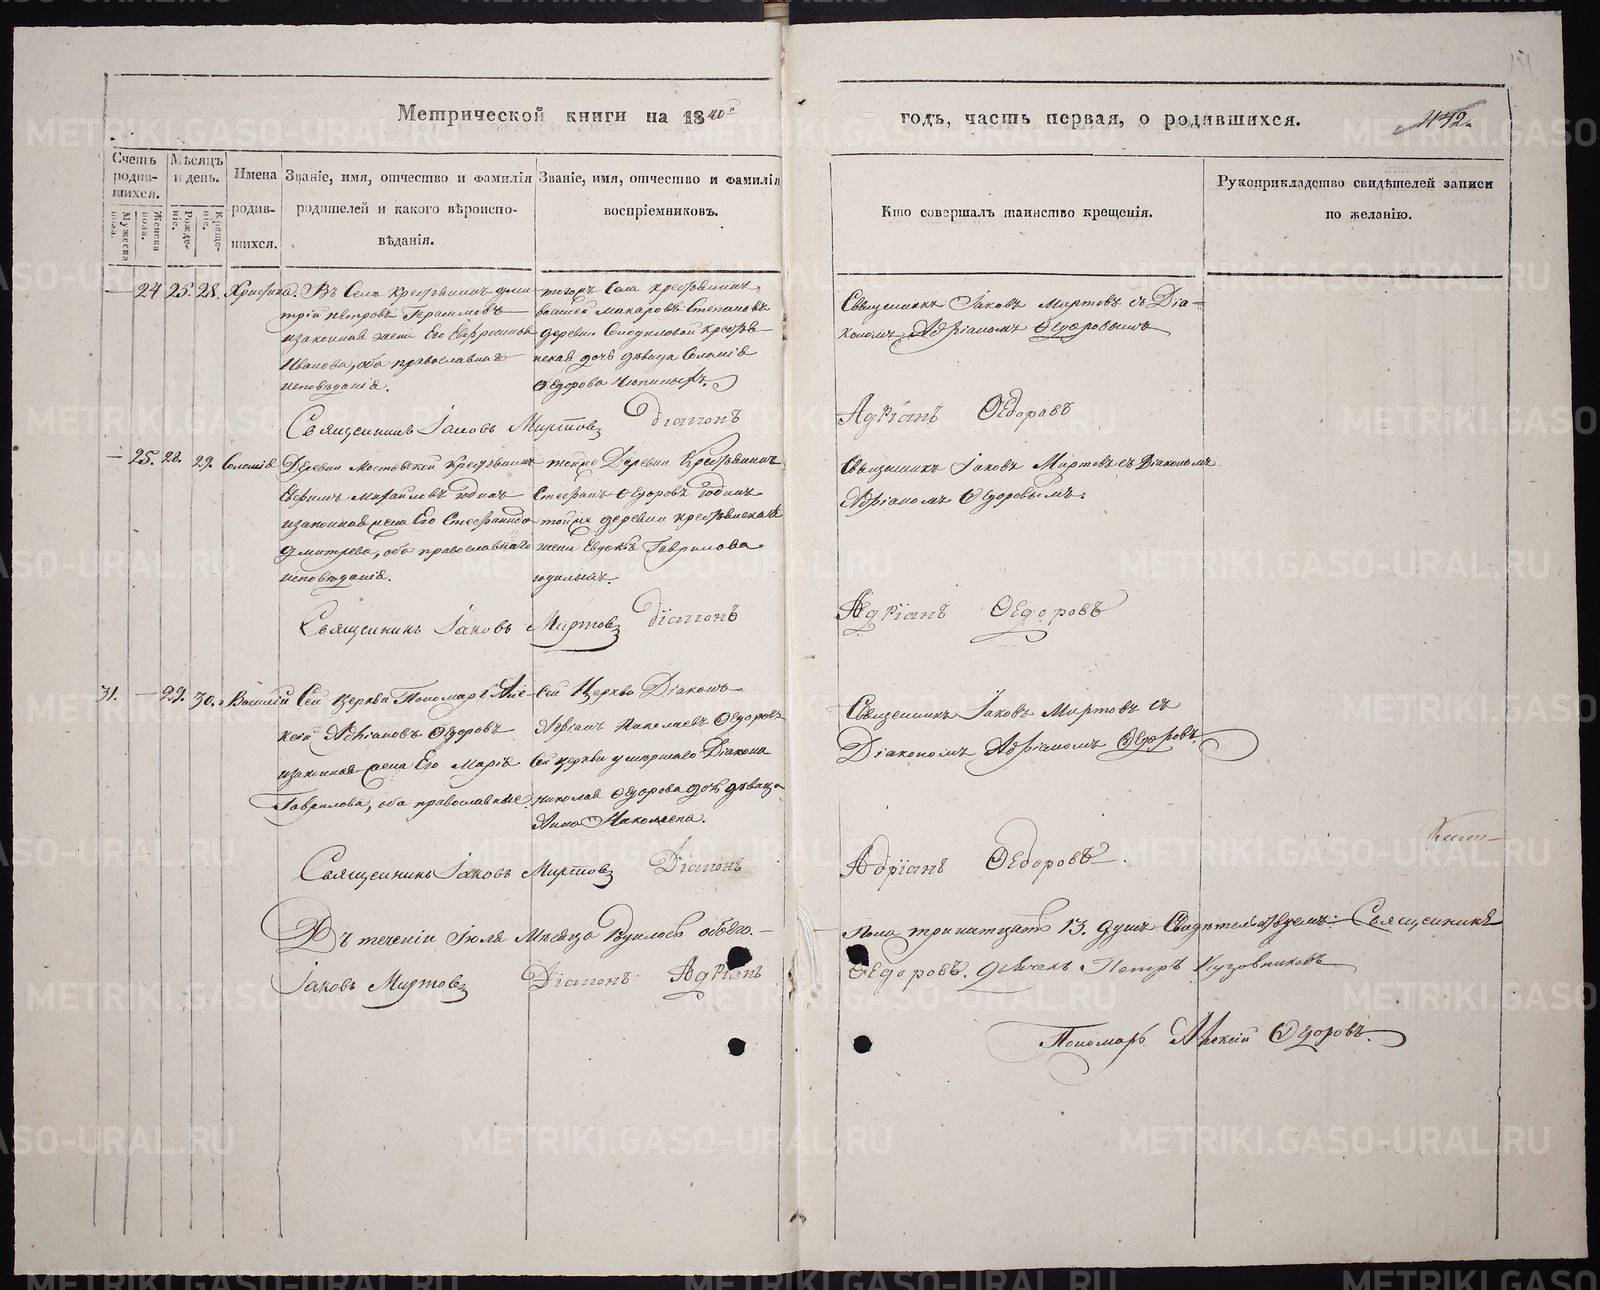 Метрической книги на 1840й
годъ, часть первая, о родившихся.
442.
Счетъ родившихся.
Мужеска пола.
Женска пола.
Мѣсяцъ и день.
Рожденіе.
Крещеніе.
Имена родившихся.
Званіе, имя, отчество и фамилія родителей и какого вѣроисповѣданія.
Званіе, имя, отчество и фамилія воспріемниковъ.
Кто совершалъ таинство крещенія.
Рукоприкладство свидѣтелей записи по желанію.
— 24 25. 28. Христина.
Въ Селѣ Крестьянинъ Дми-
трій Петровъ Герасимовъ
и законная жена Его
Иванова, оба православнаго
исповѣданія.
тогожъ Села крестьянинъ
Макаровъ Степановъ
деревни крестья-
нская дочь дѣвица Соломія
Ѳедорова
Священникъ Іаковъ Миртовъ съ Діа-
кономъ Адріаномъ Ѳедоровымъ
Священникъ Іаковъ Миртовъ Діаконъ
Адріанъ Ѳедоровъ
— 25. 28. 29. Соломія
Деревни Мостовской Крестьянинъ
Ефимъ Михайловъ Юдинъ
и законная жена Его Стефанида
Дмитрева, оба православнаго
исповѣданія.
тойже Деревни Крестьянинъ
Стефанъ Ѳедоровъ Юдинъ
тойже деревни крестьянская
жена Евдокія Гаврилова
Юдиныхъ.
Священникъ Іаковъ Миртовъ съ Діакономъ
Адріаномъ Ѳедоровымъ.
Священникъ Іаковъ Миртовъ Діаконъ
Адріанъ Ѳедоровъ
31. — 29. 30. Василій
Сей Церкви Пономарь Але-
ксій Адріановъ Ѳедоровъ
и законная жена Его Марія
Гаврилова, оба православные.
Сей Церкви Діаконъ
Адріанъ Николаевъ Ѳедоровъ
Сей церкви умершаго Діакона
Николая Ѳедорова дочь дѣвица
Анна Николаева.
Священникъ Іаковъ Миртовъ съ
Діакономъ Адріаномъ Ѳедоровъ
Священникъ Іаковъ Миртовъ Діаконъ
Адріанъ Ѳедоровъ.
Въ теченіи Іюля Мѣсяца Родилось обоего —
пола тринатцать 13. душъ Свидѣтельствуемъ: Священникъ
Іаковъ Миртовъ Діаконъ Адріанъ
Ѳедоровъ. Дьячекъ Петръ Кузовниковъ
Пономарь Алексій Ѳедоровъ.
METRIKI.GASO-URAL.RU